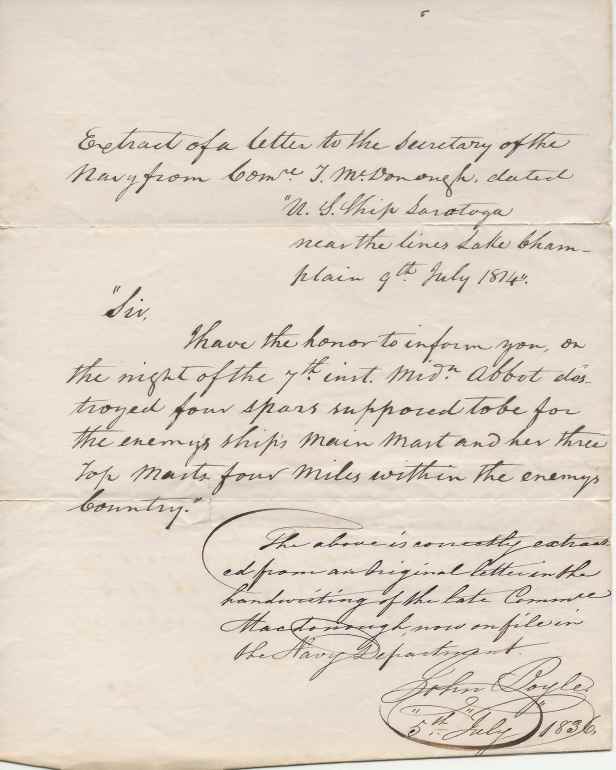 Extract of a letter to the Secretary of the
Navy from Comre T. McDonough. dated
"U. S. Ship Saratoga
near the lines Lake Cham-
plain 9th July 1814".
"Sir,
I have the honor to inform you, on
the night of the 7th inst. Midn Abbot des-
troyed four spars supposed to be for
the enemys ship's main Mast and her three
Top Masts four Miles within the enemys
Country."
The above is correctly extract-
ed from an Original letter in the
handwriting of the late Commre
Macdonough, now on file in
the Navy Department.
John Boyle
5th July 1836.